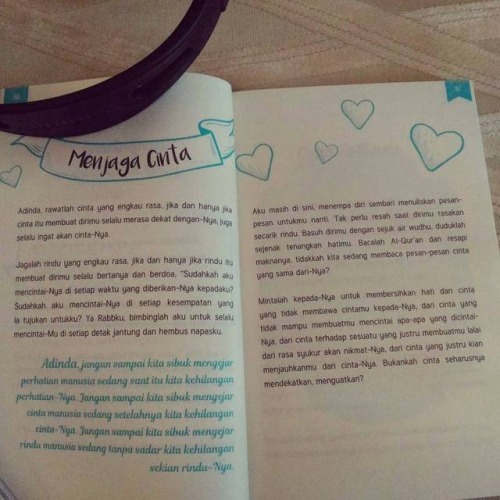 Menjaga Cinta
Adinda, rawatlah cinta yang engkau rasa, jika dan hanya jika
cinta itu membuat dirimu selalu merasa dekat dengan-Nya, juga
selalu ingat akan cinta-Nya.
Jagalah rindu yang engkau rasa, jika dan hanya jika rindu itu
membuat dirimu selalu bertanya dan berdoa, "Sudahkah aku
mencintai-Nya di setiap waktu yang diberikan-Nya kepadaku?
Sudahkah aku mencintai-Nya di setiap kesempatan yang
Ia tujukan untukku? Ya Rabbku, bimbinglah aku untuk selalu
mencintai-Mu di setiap detak jantung dan hembus napasku.
Adinda, jangan sampai kita sibuk mengejar
perhatian manusia sedang saat itu kita kehilangan
perhatian-Nya. Jangan sampai kita sibuk mengejar
cinta manusia sedang setelahnya kita kehilangan
cinta-Nya. Jangan sampai kita sibuk mengejar
rindu manusia sedang tanpa sadar kita kehilangan
sekian rindu-Nya.
Aku masih di sini, menempa diri sembari menuliskan pesan-
pesan untukmu nanti. Tak perlu resah saat dirimu rasakan
secarik rindu. Basuh dirimu dengan sejuk air wudhu, duduklah
sejenak tenangkan hatimu. Bacalah Al-Qur'an dan resapi
maknanya, tidakkah kita sedang membaca pesan-pesan cinta
yang sama dari-Nya?
Mintalah kepada-Nya untuk membersihkan hati dari cinta
yang tidak membawa cintamu kepada-Nya, dari cinta yang
tidak mampu membuatmu mencintai apa-apa yang dicintai-
Nya, dari cinta terhadap sesuatu yang justru membuatmu lalai
dari rasa syukur akan nikmat-Nya, dari cinta yang justru kian
menjauhkanmu dari cinta-Nya. Bukankah cinta seharusnya
mendekatkan, menguatkan?